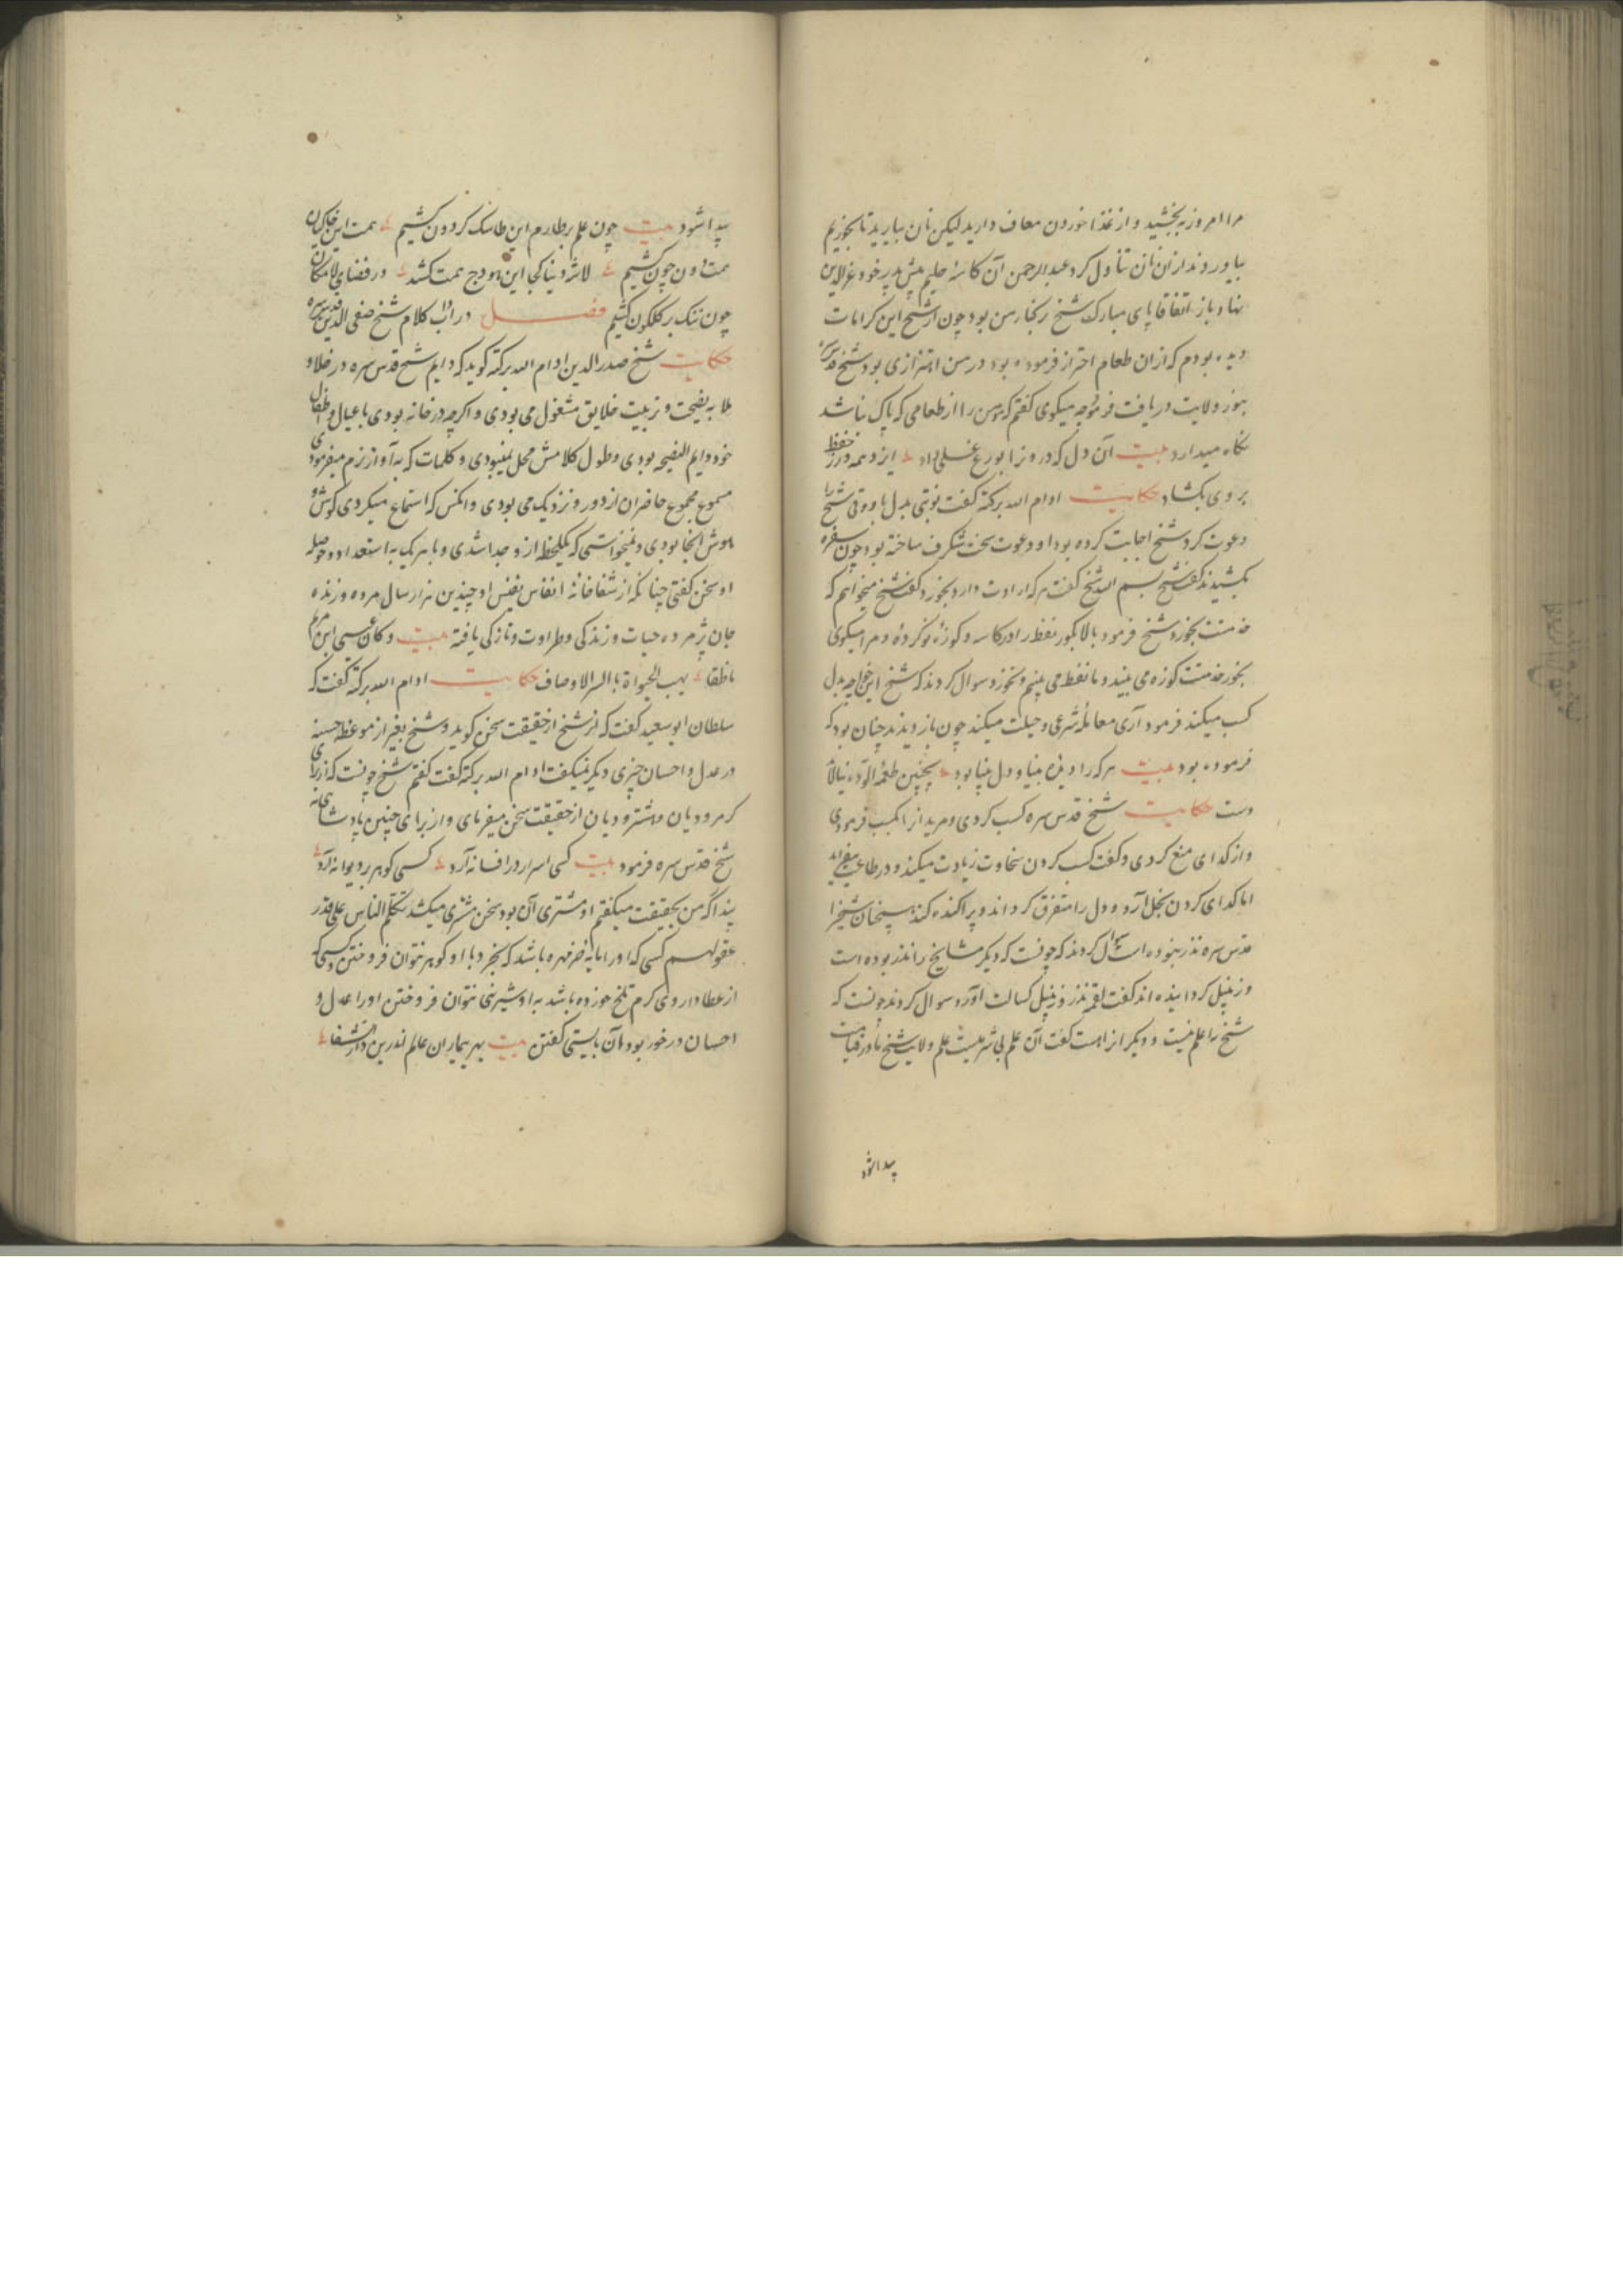 مرا امروز ببخشید و از غذا خوردن معاف دارید لیکن نان بیارید تا بخوریم
بیاوردند از ان نان تناول کرد عبدالرحمن آن کاسه حلیم پیش پدر خود عزالدین
نهاد باز اتفاقا پای مبارک شیخ در کنار من بود چون از شیخ این کرامات
دیده بودم که از ان طعام احتراز فرموده بود در من اهتزازی بود شیخ قدس سره
بنور ولایت دریافت فرمود چه میکوی کفتم که من را از طعامی که پاک نباشد
نکاه میدارد بیت آن دل که درو نزا بورع غسلی داد ایزد همه در حفظ
بروی بکشاد حکایت ادام الله برکته کفت نوبتی بدل با روقی شیخ را
دعوت کرد شیخ اجابت کرده بود او دعوت سخت شکرف ساخته بود چون سفره
بکشیدند کفت شیخ بسم الله شیخ کفت هر که ارادت دارد بخورد کفت شیخ میخواهم که
خدمتت بخورد شیخ فرمود بالا بکور نفط را در کاسه و کوزه نو کرده و مرا میکوی
بخور خدمتت کوزه می بیند و ما نفط می بینیم و نخورد سوال کردند که شیخ این خواجه بدل
کسب میکند فرمود آری معامله شرعی و حیلت میکند چون باز دیدند چنان بود که
فرموده بود بیت هر که را دیده بینا و دل بینا بود بچنین طعمه آلوده نیالاید
دست حکایت شیخ قدس سره کسب کردی و مریدانرا بکسب فرمودی
و از کدای منع کردی و کفت کسب کردن سخاوت زیادت میکند و در طاعت بیفزاید
اما کدای کردن بخل آرد و دل را متفرق کرداند و پراکنده کند همچنان شیخ را
قدس سره نذر نبوده است سوال کردند که چونست که دیکر مشایخ را نذر بوده است
و زنبیل کردانیده اند کفت لقمه نذر و زنبیل کسالت آورد سوال کردند چونست که
شیخ را علم نیست و دیکرانرا هست کفت آن علم بی شر نیست علم ولایت شیخ تا در قیامت
پیدا شود
پیدا شود بیت چون علم بر طارم این طاسک کردون کشیم همت این خاکیان
همت دون چون کشیم لاشه دنیا کجا این هودج همت کشد در فضای لامکان
چون تنک بر کلکون کشیم فصل در آداب کلام شیخ صفی الدین قدس سره
حکایت شیخ صدر الدین ادام الله برکته کوید که دایم شیخ قدس سره در خلا و
ملا به نصیحت و تربیت خلایق مشغول می بودی و اکرچه در خانه بودی با عیال و اطفال
خود دایم النصیحه بودی و طول کلامش مخل نمیبودی و کلمات که به آواز نرم میفرمودی
مسموع مجموع حاضران از دور و نزدیک می بودی و انکس که استماع میکردی کوش و
هوش آنجا بودی و نمیخواستی که یک لحظه از و جدا شدی و با هر یک به استعداد و حوصله
او سخن کفتی چنانکه از شفاخانه انفاس نفیس او چندین هزار سال مرده و زنده
جان پژمرده حیات و زندکی و طراوت و تازکی یافته بیت وکان عیسی ابن مریم
ناطقا یهب الحیوة باالسر الاوصاف حکایت ادام الله برکته کفت که
سلطان ابو سعید کفت که از شیخ از حقیقت سخن کوید و شیخ بغیر از موعظه حسنه
در عدل و احسان چیزی دیکر نمیکفت ادام الله برکته کفت کفتم شیخ چونست که از برای
کرمرودیان و اشترودیان از حقیقت سخن میفرمای و از برای چنین پادشاهی نه
شیخ قدس سره فرمود بیت کسی اسرار در افسانه آرد کسی کوهر بر دیوانه آرد
پندا اکر من بحقیقت میکفتم او مشتری آن بود سخن مشتری میکشد نکلم الناس علی قدر
عقولهم کسی که اورا مایه خرمهره باشد که بخرد با او کوهر نتوان فروختن و کسی که
از عطا داروی کرم تلخ خورده باشد به او شیرینی نتوان فروختن اورا عدل و
احسان در خور بود همان بایستی کفتن بیت بهر بیماران عالم اندرین دار الشفا